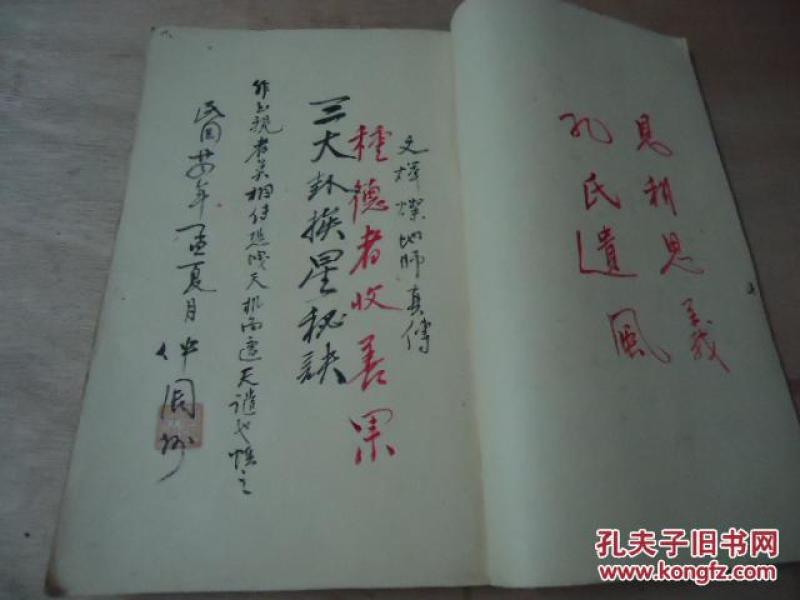 見利思義
孔氏遺風
文煇燦地師真傳
種德者收善果
三大卦挨星秘訣
視者莫相傳恐洩天机而遭天譴也慎之
民国廿年孟夏月仲周
孔夫子旧书网
www.kongfz.com